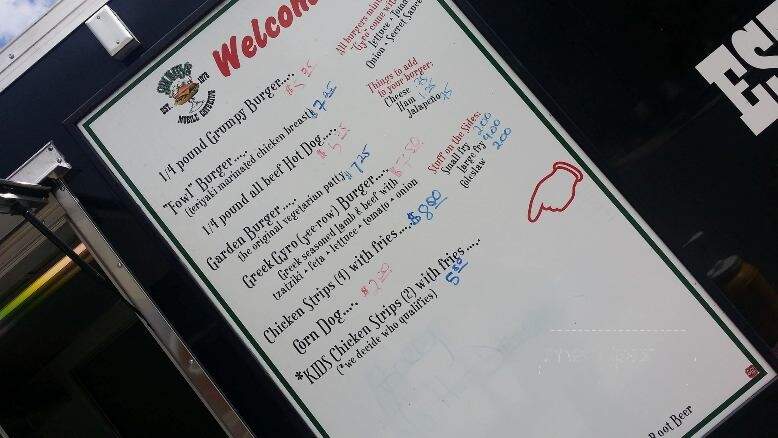 Welcome
MOBILE CATERING
1/4 pound Grumpy Burger....
"Fowl" Burger.....
(teriyaki marinated chicken breast) $7.25
1/4 pound all beef Hot Dog....
Garden Burger.....
the original vegetarian patty $7.25
Greek Gyro (yee-row) Burger.... $7.50
Greek seasoned lamb & beef with
tzatziki + feta + lettuce + tomato + onion
Chicken Strips (4) with fries .... $8.00
Corn Dog.... $2.50
*KIDS Chicken Strips (2) with fries ....
(*we decide who qualifies) 5.50
All burgers
"Gyro" come with
lettuce + 
Onion + Secret Sauce
Things to add
to your burger:
Cheese
Ham
Jalapeño
Stuff on the Sides:
Small fry 2.00
Large fry 4.00
Coleslaw 2.00
Root Beer
ES